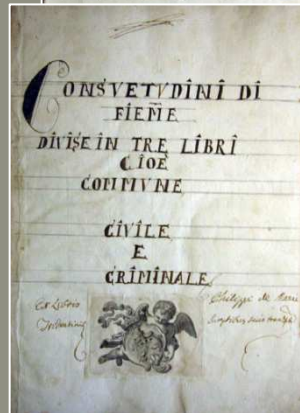 CONSVETVDINI DI
FIEM̃E
DIVISE IN TRE LIBRI
CIOE
COMMVNE
CIVILE
E
CRIMINALE
Ex Libris
Philippi